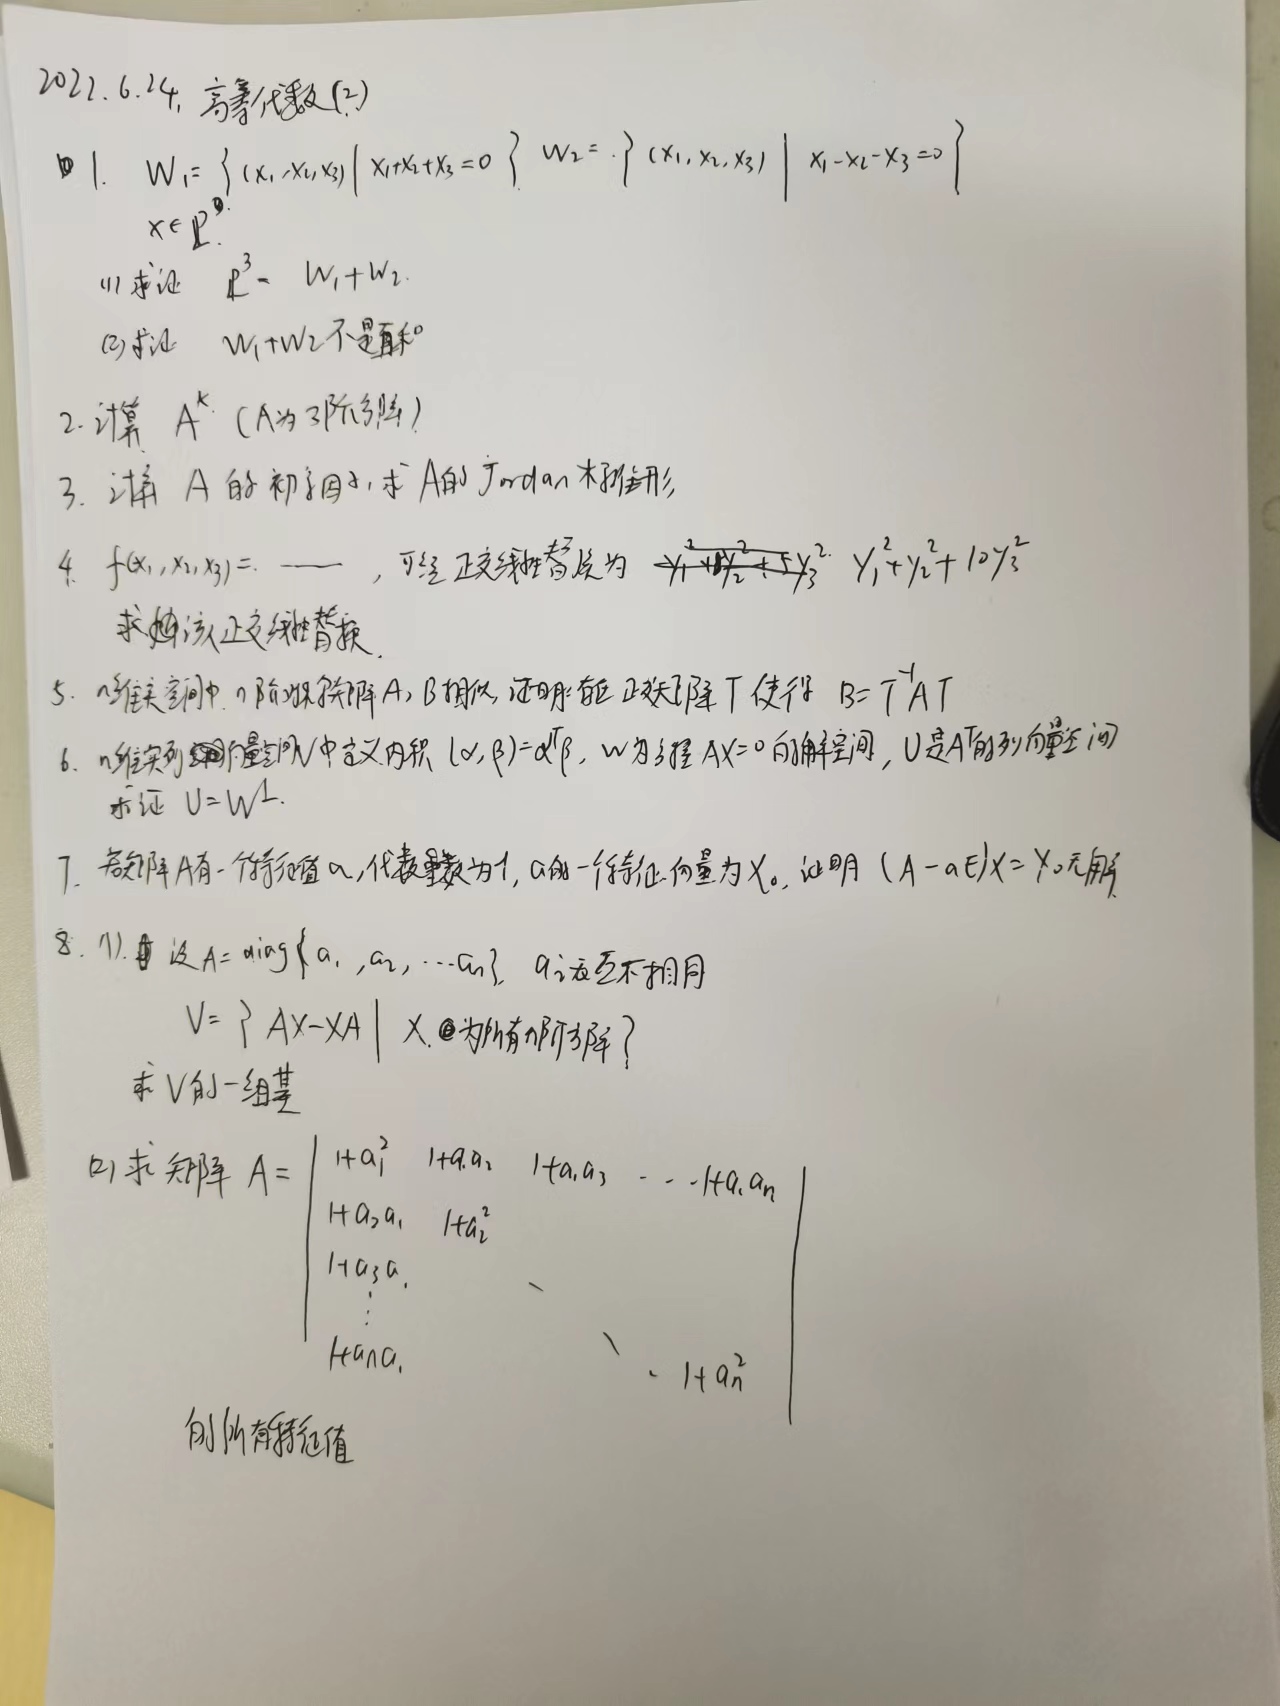 2022.6.24. 高等代数(2)
1. W₁={(x₁,x₂,x₃)|x₁+x₂+x₃=0} W₂={(x₁,x₂,x₃)|x₁-x₂-x₃=0}
x∈P³.
(1) 求证 P³= W₁+W₂.
(2) 求证 W₁+W₂不是直和
2. 计算 Aᵏ (A为3阶方阵)
3. 计算 A的初等因子,求A的Jordan标准形
4. f(x₁,x₂,x₃)= —— ,可经正交线性替换为 y₁²+y₂²+10y₃²
求出该正交线性替换.
5. n维实空间中n阶对称矩阵A,B相似,证明存在正交矩阵T使得 B=T⁻¹AT
6. n维实列向量空间V中定义内积 (α,β)=αᵀβ, W为方程AX=0的解空间, U是Aᵀ的列向量空间
求证 U=W⊥.
7. 矩阵A有一个特征值a,代数重数为1,a的一个特征向量为X₀,证明 (A-aE)X=X₀无解
8. (1). 设A=diag{a₁,a₂,…aₙ}, aᵢ互不相同
V={AX-XA|X为所有n阶方阵}
求V的一组基
(2) 求矩阵 A= | 1+a₁² 1+a₁a₂ 1+a₁a₃ ··· 1+a₁aₙ |
1+a₂a₁ 1+a₂²
1+a₃a₁
⋮
1+aₙa₁ 1+aₙ²
的所有特征值